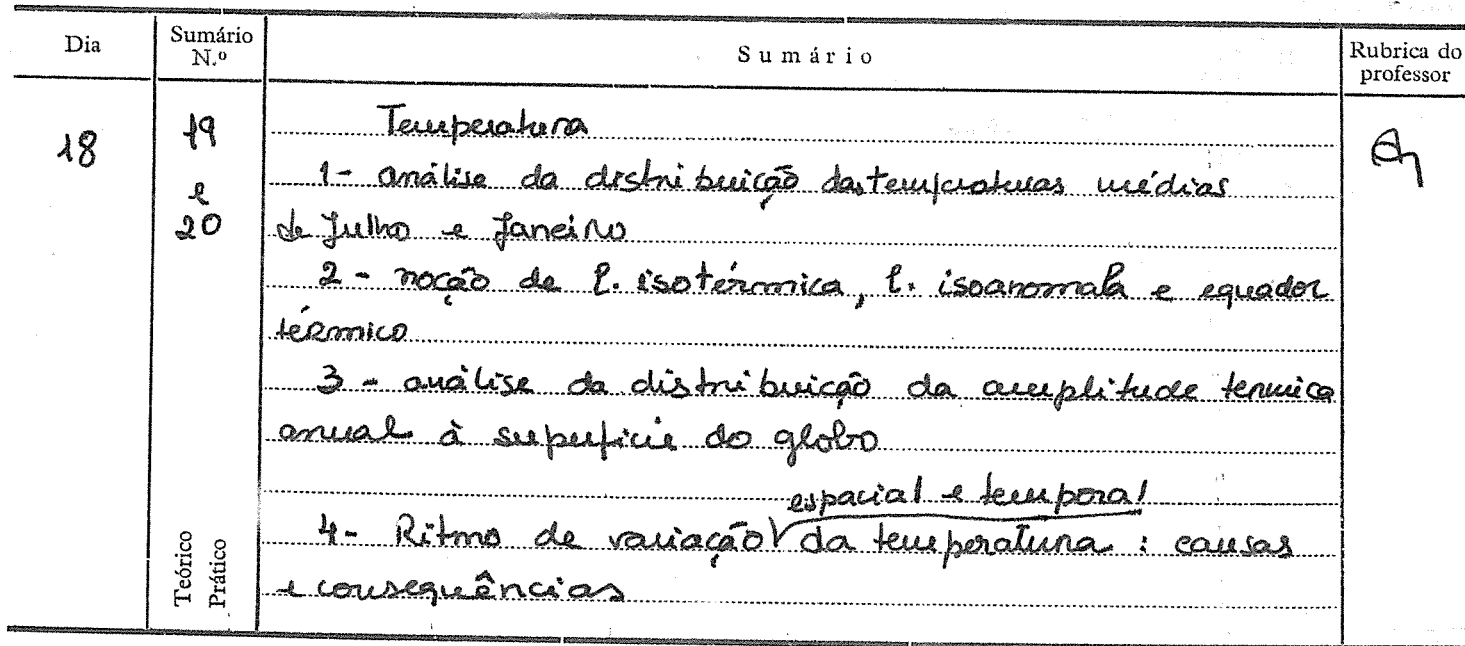 Dia
Sumário N.º
Sumário
Rubrica do professor
18
19 e 20
Temperatura
1- análise da distribuição das temperaturas médias
de Julho e Janeiro
2 - noção de l. isotérmica, l. isoanomala e equador
térmico
3 - análise da distribuição da amplitude termica
anual à superfície do globo
espacial e temporal
4- Ritmo de variação da temperatura : causas
e consequências
Teórico
Prático